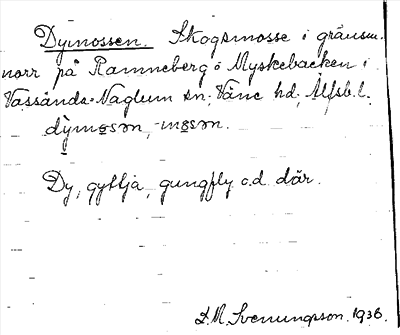 Dymossen. Skogsmosse i gränsen
norr på Ramneberg o Myskebacken i
Vassända-Naglum sn, Väne hd, Älfsb. l.
dỳmɷsəm, -mɷsəm.
Dy, gyttja, gungfly o.d. där.
D.M. Svenungsson. 1936.